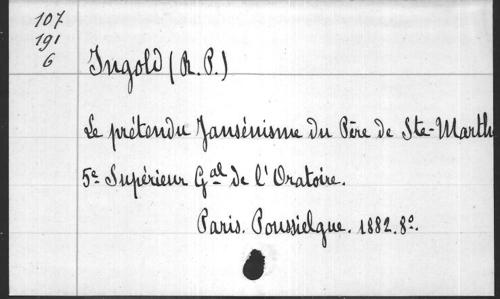 107
191
6
Ingold (R. P.)
Le prétendu Jansénisme du Père de Ste-Marth
5e Supérieur Gal de l'Oratoire.
Paris. Poussielgue. 1882. 8o.